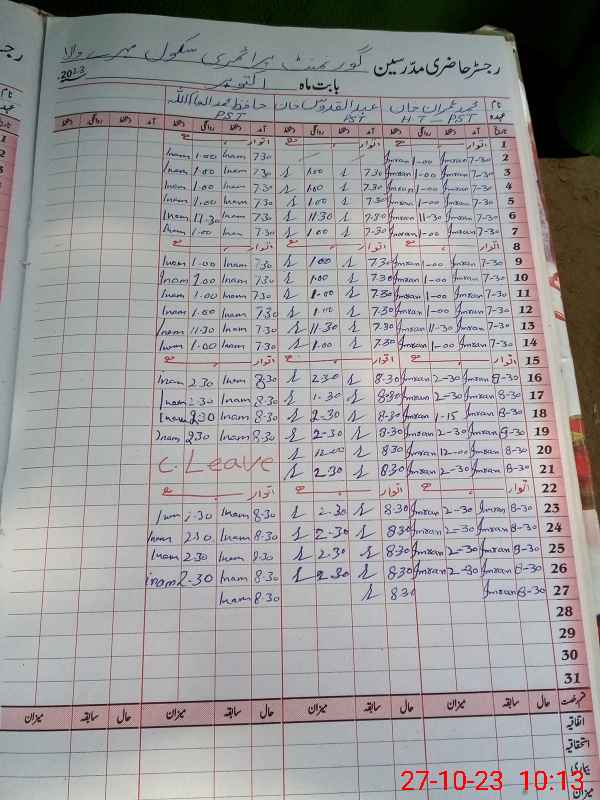 رجسٹر حاضری مدرسین گورنمنٹ پرائمری سکول
بابت ماہ اکتوبر 2023
نام محمد عمران خان عبدالقدوس خان حافظ
عہدہ HT - PST PST PST
تاریخ آمد دستخط روانگی دستخط آمد دستخط روانگی دستخط آمد دستخط روانگی دستخط
1 اتوار اتوار اتوار
2 7-30 Imran 1-00 Imran 7.30 Inam 1.00 Inam
3 7-30 Imran 1-00 Imran 7.30 1.00 7.30 Inam 1.00 Inam
4 7-30 Imran 1-00 Imran 7.30 1.00 7.30 Inam 1.00 Inam
5 7-30 Imran 1-00 Imran 7.30 1.00 7.30 Inam 1.00 Inam
6 7-30 Imran 11-30 Imran 7.30 11.30 7.30 Inam 11.30 Inam
7 7-30 Imran 1-00 Imran 7.30 1.00 7.30 Inam 1.00 Inam
8 اتوار اتوار اتوار
9 7-30 Imran 1-00 Imran 7.30 1.00 7.30 Inam 1.00 Inam
10 7-30 Imran 1-00 Imran 7.30 1.00 7.30 Inam 1.00 Inam
11 7-30 Imran 1-00 Imran 7.30 1.00 7.30 Inam 1.00 Inam
12 7-30 Imran 1-00 Imran 7.30 1.00 7.30 Inam 1.00 Inam
13 7-30 Imran 11-30 Imran 7.30 11.30 7.30 Inam 11.30 Inam
14 7-30 Imran 1-00 Imran 7.30 1.00 7.30 Inam 1.00 Inam
15 اتوار اتوار اتوار
16 8-30 Imran 2-30 Imran 8.30 2.30 8.30 Inam 2.30 Inam
17 8-30 Imran 2-30 Imran 8.30 1.30 8.30 Inam 2.30 Inam
18 8-30 Imran 1-15 Imran 8.30 2.30 8.30 Inam 2.30 Inam
19 8-30 Imran 2-30 Imran 8.30 2.30 8.30 Inam 2.30 Inam
20 8-30 Imran 12-00 Imran 8.30 12.00 C. Leave
21 8-30 Imran 2-30 Imran 8.30 2.30
22 اتوار اتوار اتوار
23 8-30 Imran 2-30 Imran 8.30 2.30 8.30 Inam 2.30 Inam
24 8-30 Imran 2-30 Imran 8.30 2.30 8.30 Inam 2.30 Inam
25 8-30 Imran 2-30 Imran 8.30 2.30 8.30 Inam 2.30 Inam
26 8-30 Imran 2-30 Imran 8.30 2.30 8.30 Inam 2.30 Inam
27 8-30 Imran 8.30 8.30 Inam
28
29
30
31
قسم رخصت حال سابقہ میزان حال سابقہ میزان حال سابقہ میزان حال سابقہ میزان
اتفاقیہ
استحقاقیہ
بیماری
میزان
27-10-23 10:13